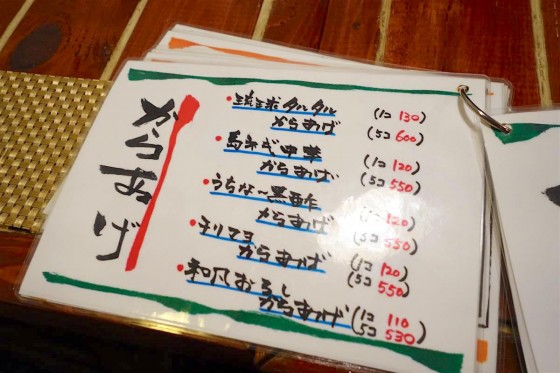 からあげ
・琉球タルタル
からあげ
(1コ 130)
(5コ 600)
・馬ネ式中華
からあげ
(1コ 120)
(5コ 550)
・うちな〜黒酉作
からあげ
(1コ 120)
(5コ 550)
・テリマヨ
からあげ
(1コ 120)
(5コ 550)
・和風おろし
からあげ
(1コ 110)
(5コ 530)